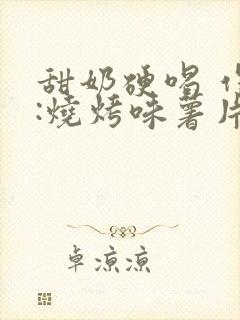 甜奶硬唱
:燒烤味薯片
卓凉凉